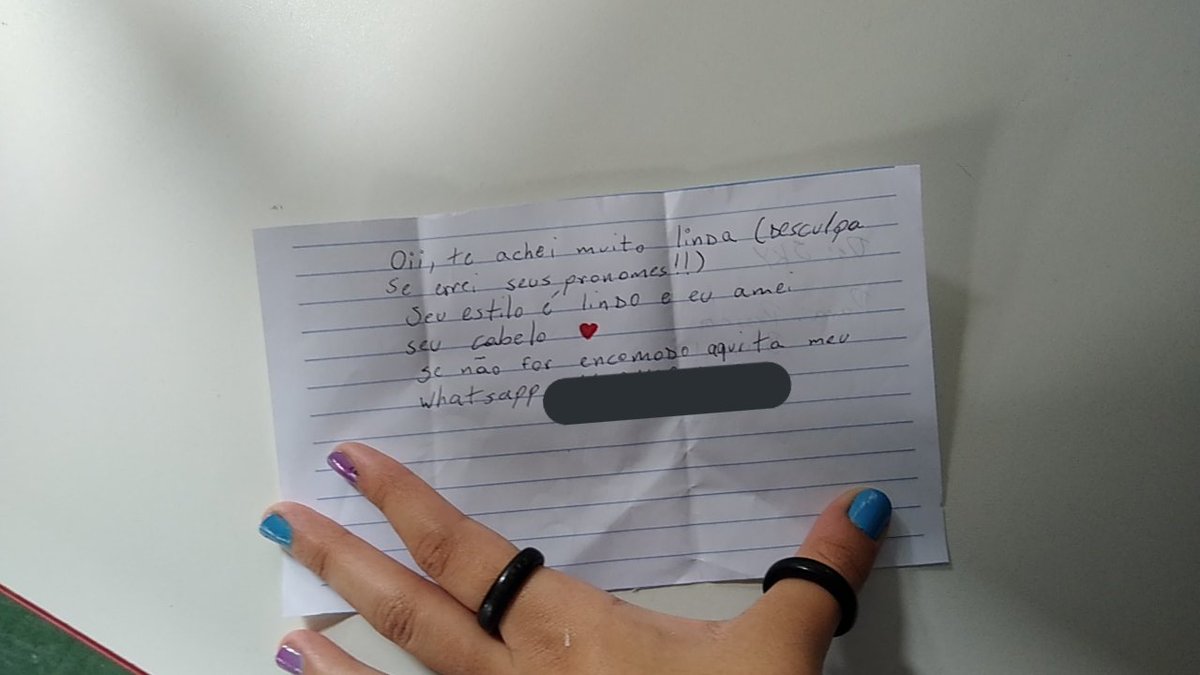 Oii, te achei muito linda (Desculpa
se errei seus pronomes!!)
Seu estilo é lindo e eu amei
seu cabelo ♥
se não for encomodo aqui ta meu
whatsapp